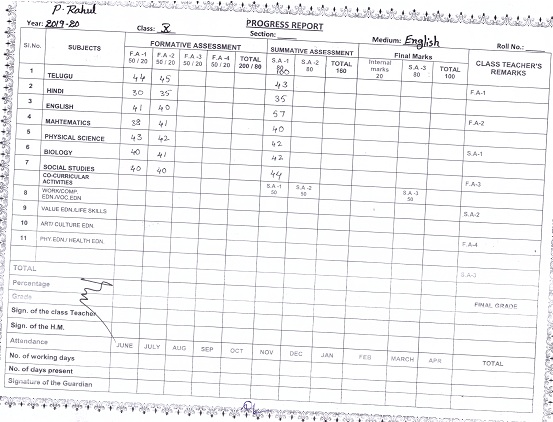 P. Rahul
PROGRESS REPORT
Year: 2019-20 Class: X Section: Medium: English Roll No.:
Sl.No. SUBJECTS FORMATIVE ASSESSMENT SUMMATIVE ASSESSMENT Final Marks CLASS TEACHER'S REMARKS
F.A -1 50 / 20 F.A -2 50 / 20 F.A -3 50 / 20 F.A -4 50 / 20 TOTAL 200 / 80 S.A -1 80 S.A -2 80 TOTAL 160 Internal marks 20 S.A -3 80 TOTAL 100
1 TELUGU 44 45 43 F.A-1
2 HINDI 30 35 35
3 ENGLISH 41 40 57 F.A-2
4 MAHTEMATICS 38 41 40
5 PHYSICAL SCIENCE 43 42 42 S.A-1
6 BIOLOGY 40 41 42
7 SOCIAL STUDIES 40 40 44 F.A-3
CO-CURRICULAR ACTIVITIES S.A -1 50 S.A -2 50 S.A -3 50
8 WORK/COMP. EDN./VOC.EDN
9 VALUE EDN./LIFE SKILLS S.A-2
10 ART/ CULTURE EDN.
11 PHY.EDN./ HEALTH EDN. F.A-4
TOTAL S.A-3
Percentage
Grade FINAL GRADE
Sign. of the class Teacher
Sign. of the H.M.
Attendance JUNE JULY AUG SEP OCT NOV DEC JAN FEB MARCH APR TOTAL
No. of working days
No. of days present
Signature of the Guardian